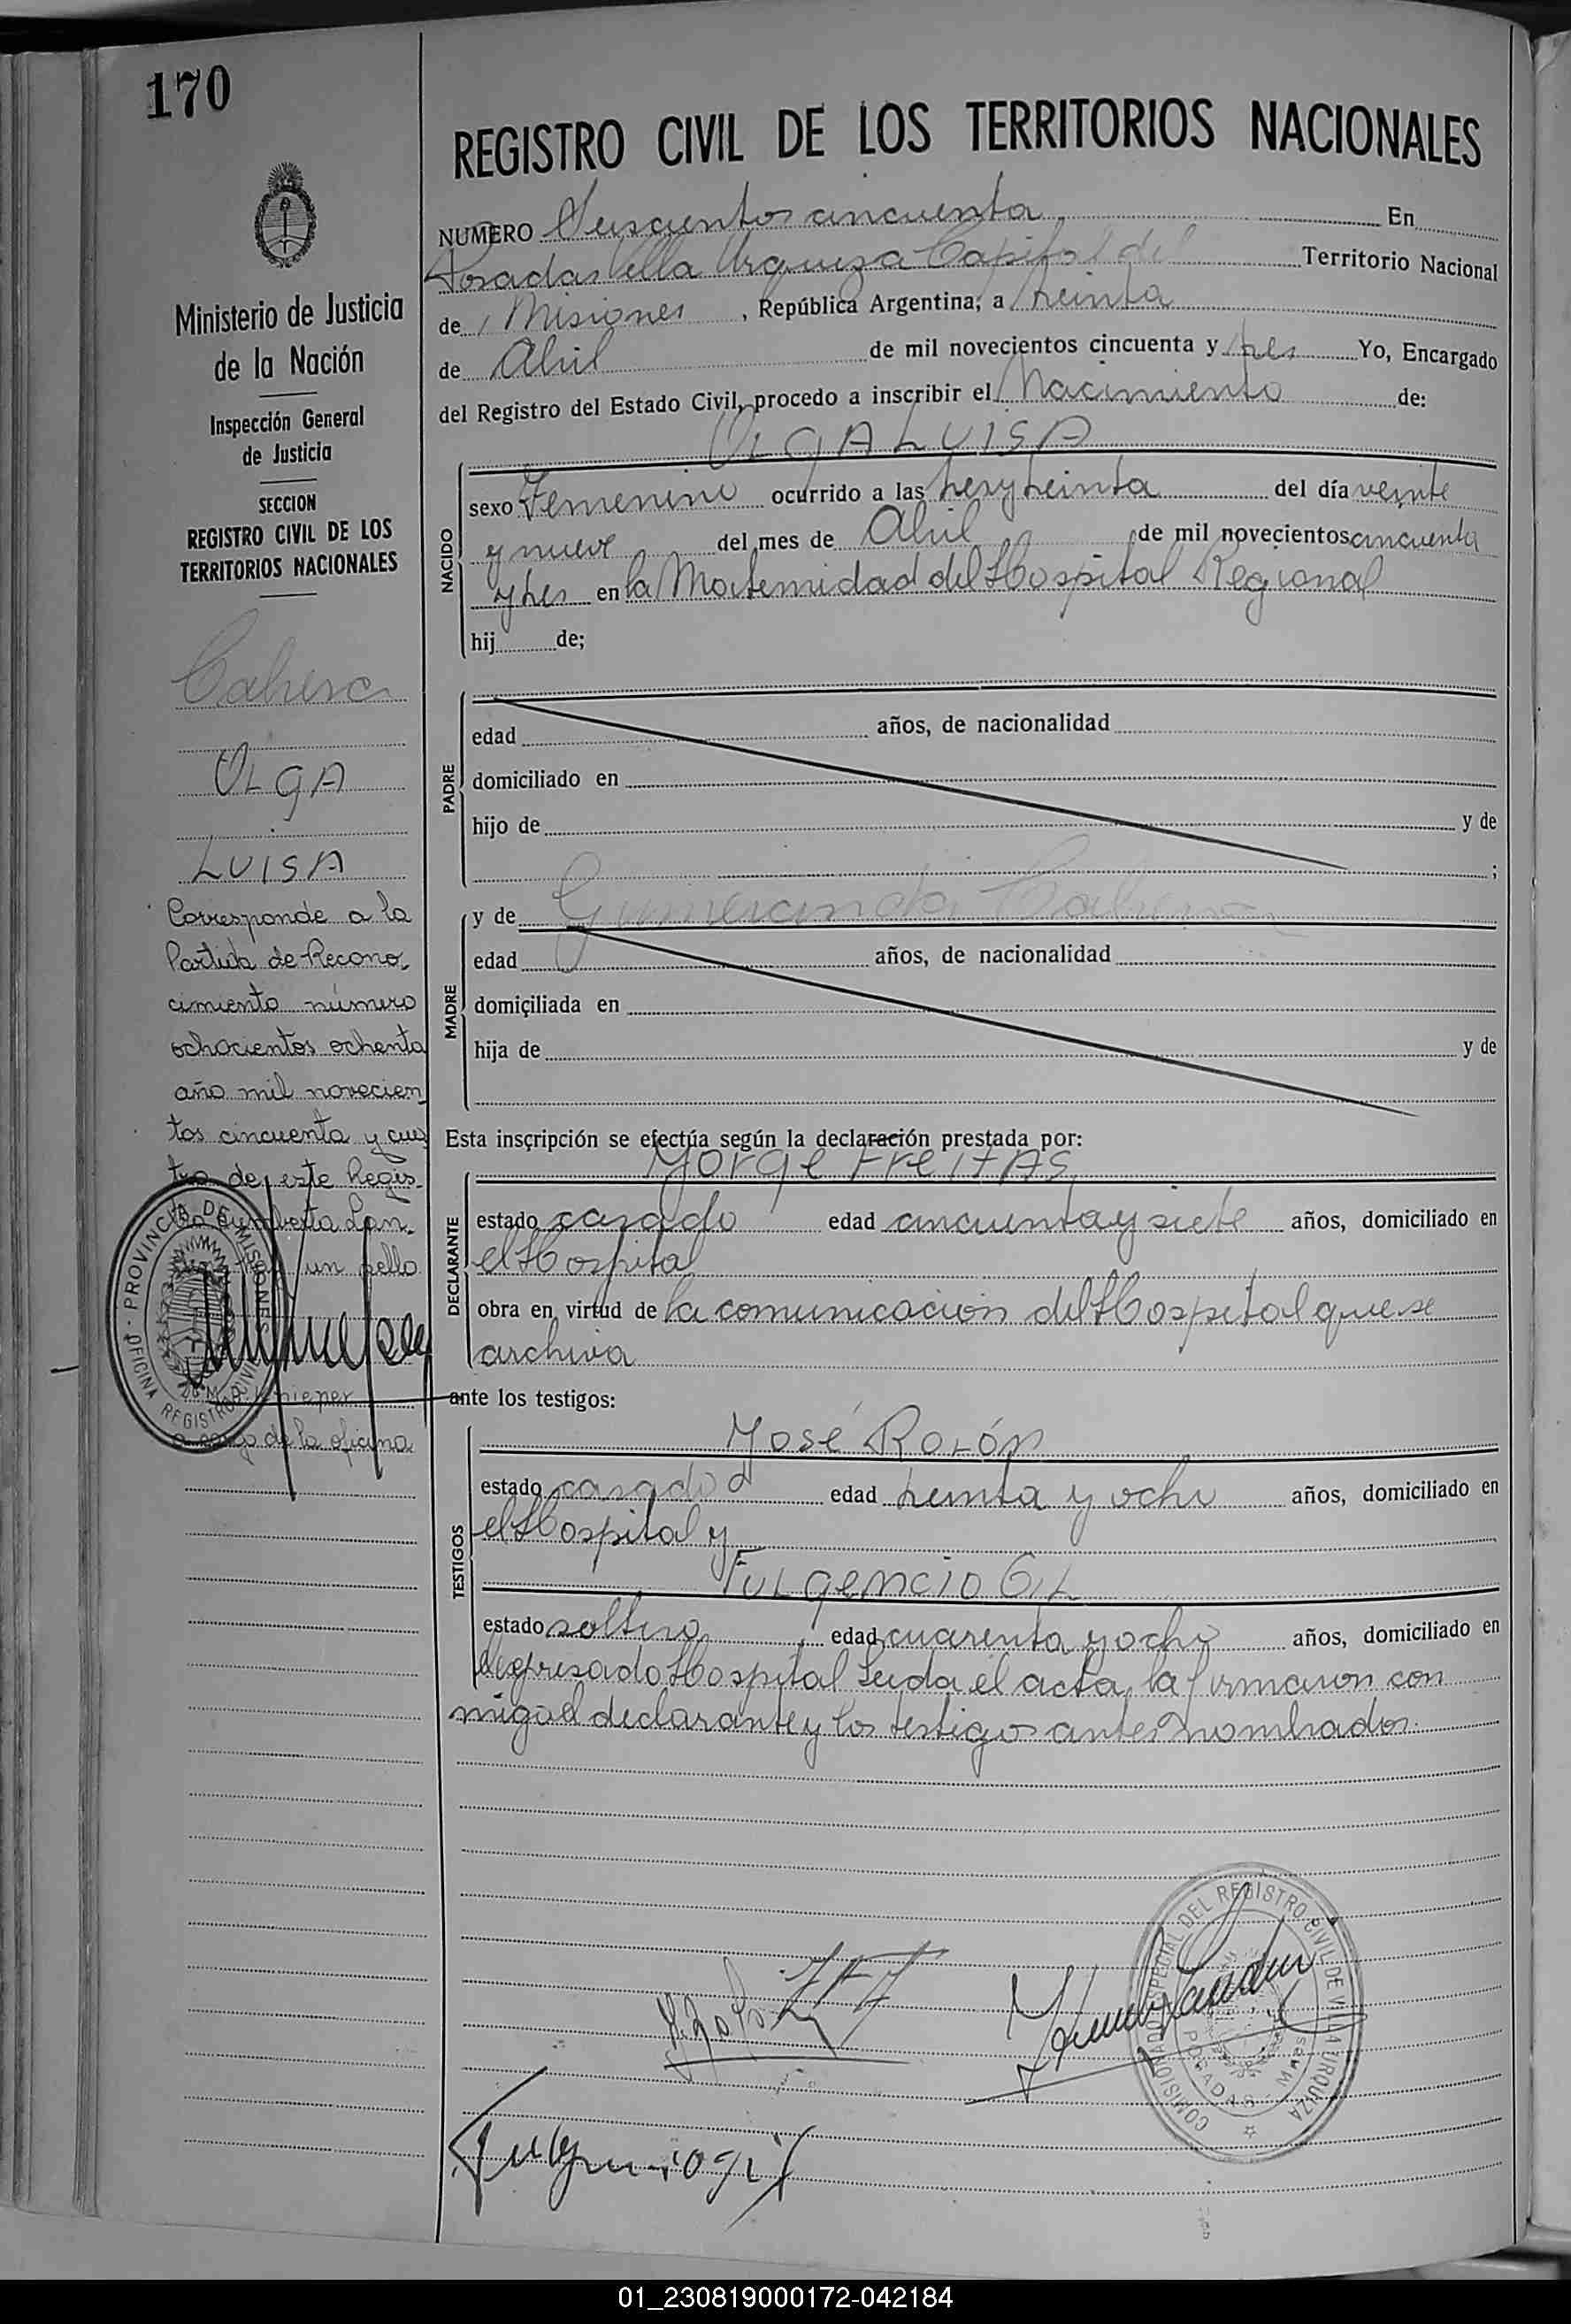 170
Ministerio de Justicia
de la Nación
Inspección General
de Justicia
SECCION
REGISTRO CIVIL DE LOS
TERRITORIOS NACIONALES
OLGA
LUISA
Corresponde a la
Partida de Recono-
cimiento número
ochocientos ochenta
año mil novecien
tos cincuenta y cua
tro de este Regis-
un sello
a cargo de la oficina
PROVINCIA DE MISIONES
OFICINA REGISTRO CIVIL
REGISTRO CIVIL DE LOS TERRITORIOS NACIONALES
NUMERO Seiscientos cincuenta En
Posadas Villa Urquiza Capital del Territorio Nacional
de Misiones, República Argentina, a treinta
de Abril de mil novecientos cincuenta y tres Yo, Encargado
del Registro del Estado Civil, procedo a inscribir el Nacimiento de:
OLGA LUISA
NACIDO
sexo Femenino ocurrido a las tres y treinta del día veinte
y nueve del mes de Abril de mil novecientos cincuenta
y tres en la Maternidad del Hospital Regional
hij de;
PADRE
edad años, de nacionalidad
domiciliado en
hijo de y de
;
MADRE
y de Gumercinda
edad años, de nacionalidad
domiciliada en
hija de y de
Esta inscripción se efectúa según la declaración prestada por:
DECLARANTE
Jorge FreitAS
estado casado edad cincuenta y siete años, domiciliado en
el Hospital
obra en virtud de la comunicación del Hospital que se
archiva
ante los testigos:
TESTIGOS
José Rolón
estado casado edad treinta y ocho años, domiciliado en
el Hospital y
Fulgencio Gil
estado soltero edad cuarenta y ocho años, domiciliado en
el expresado Hospital Leida el acta, la firmaron con
migo el declarante y los testigos antes nombrados.
COMISIONADO ESPECIAL DEL REGISTRO CIVIL DE VILLA URQUIZA
POSADAS
Fulgencio gil
01_230819000172-042184